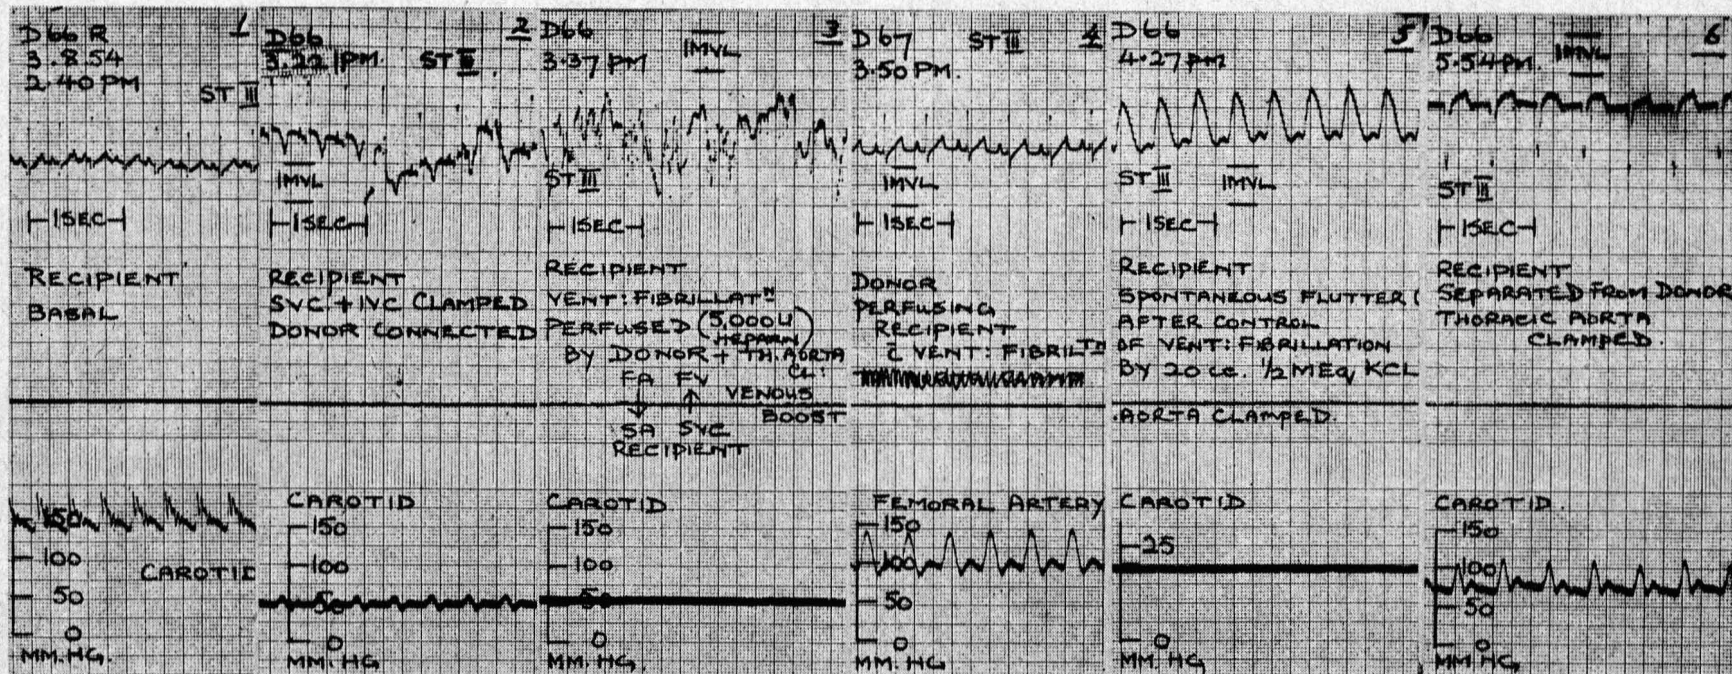 D66 R 1
3.8.54
2.40 PM
ST III
⊢1SEC⊣
RECIPIENT
BASAL
150
100
CAROTID
50
0
MM.HG.
D66 2
3.22 PM. ST II.
1MVL
⊢1SEC⊣
RECIPIENT
SVC. + IVC CLAMPED
DONOR CONNECTED
CAROTID
150
100
50
0
MM. HG
D66 1MVL 3
3.37 PM
ST III
⊢1SEC⊣
RECIPIENT
VENT: FIBRILLATN
PERFUSED (5,000U HEPARIN)
BY DONOR + TH. AORTA CL:
FA FV
↓ ↑ VENOUS BOOST
SA SVC
RECIPIENT
CAROTID
150
100
50
0
MM. HG.
D67 ST II 4
3.50 PM.
1MVL
⊢1SEC⊣
DONOR
PERFUSING
RECIPIENT
C̄ VENT: FIBRILTN
FEMORAL ARTERY
150
100
50
0
MM. HG
D66 5
4.27 PM
ST III 1MVL
⊢1SEC⊣
RECIPIENT
SPONTANEOUS FLUTTER (
AFTER CONTROL
OF VENT: FIBRILLATION
BY 20 cc. 1/2 MEq KCL
.AORTA CLAMPED.
CAROTID
25
0
MM. HG
D66 6
5.54 PM. 1MVL
ST II
⊢1SEC⊣
RECIPIENT
SEPARATED FROM DONOR
THORACIC AORTA
CLAMPED.
CAROTID.
150
100
50
0
MM. HG